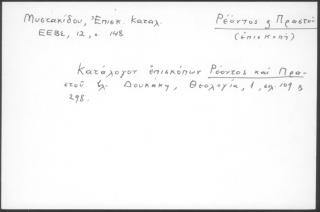 Μυστακίδου, Ἐπισκ. καταλ.
ΕΕΒΣ, 12, σ. 148
Ρέοντος ἢ Πραστοῦ
(ἐπισκοπὴ)
Κατάλογον ἐπισκόπων Ρέοντος καὶ Πρα-
στοῦ βλ. Δουκάκη, Θεολογία, 1, σελ. 109
298.